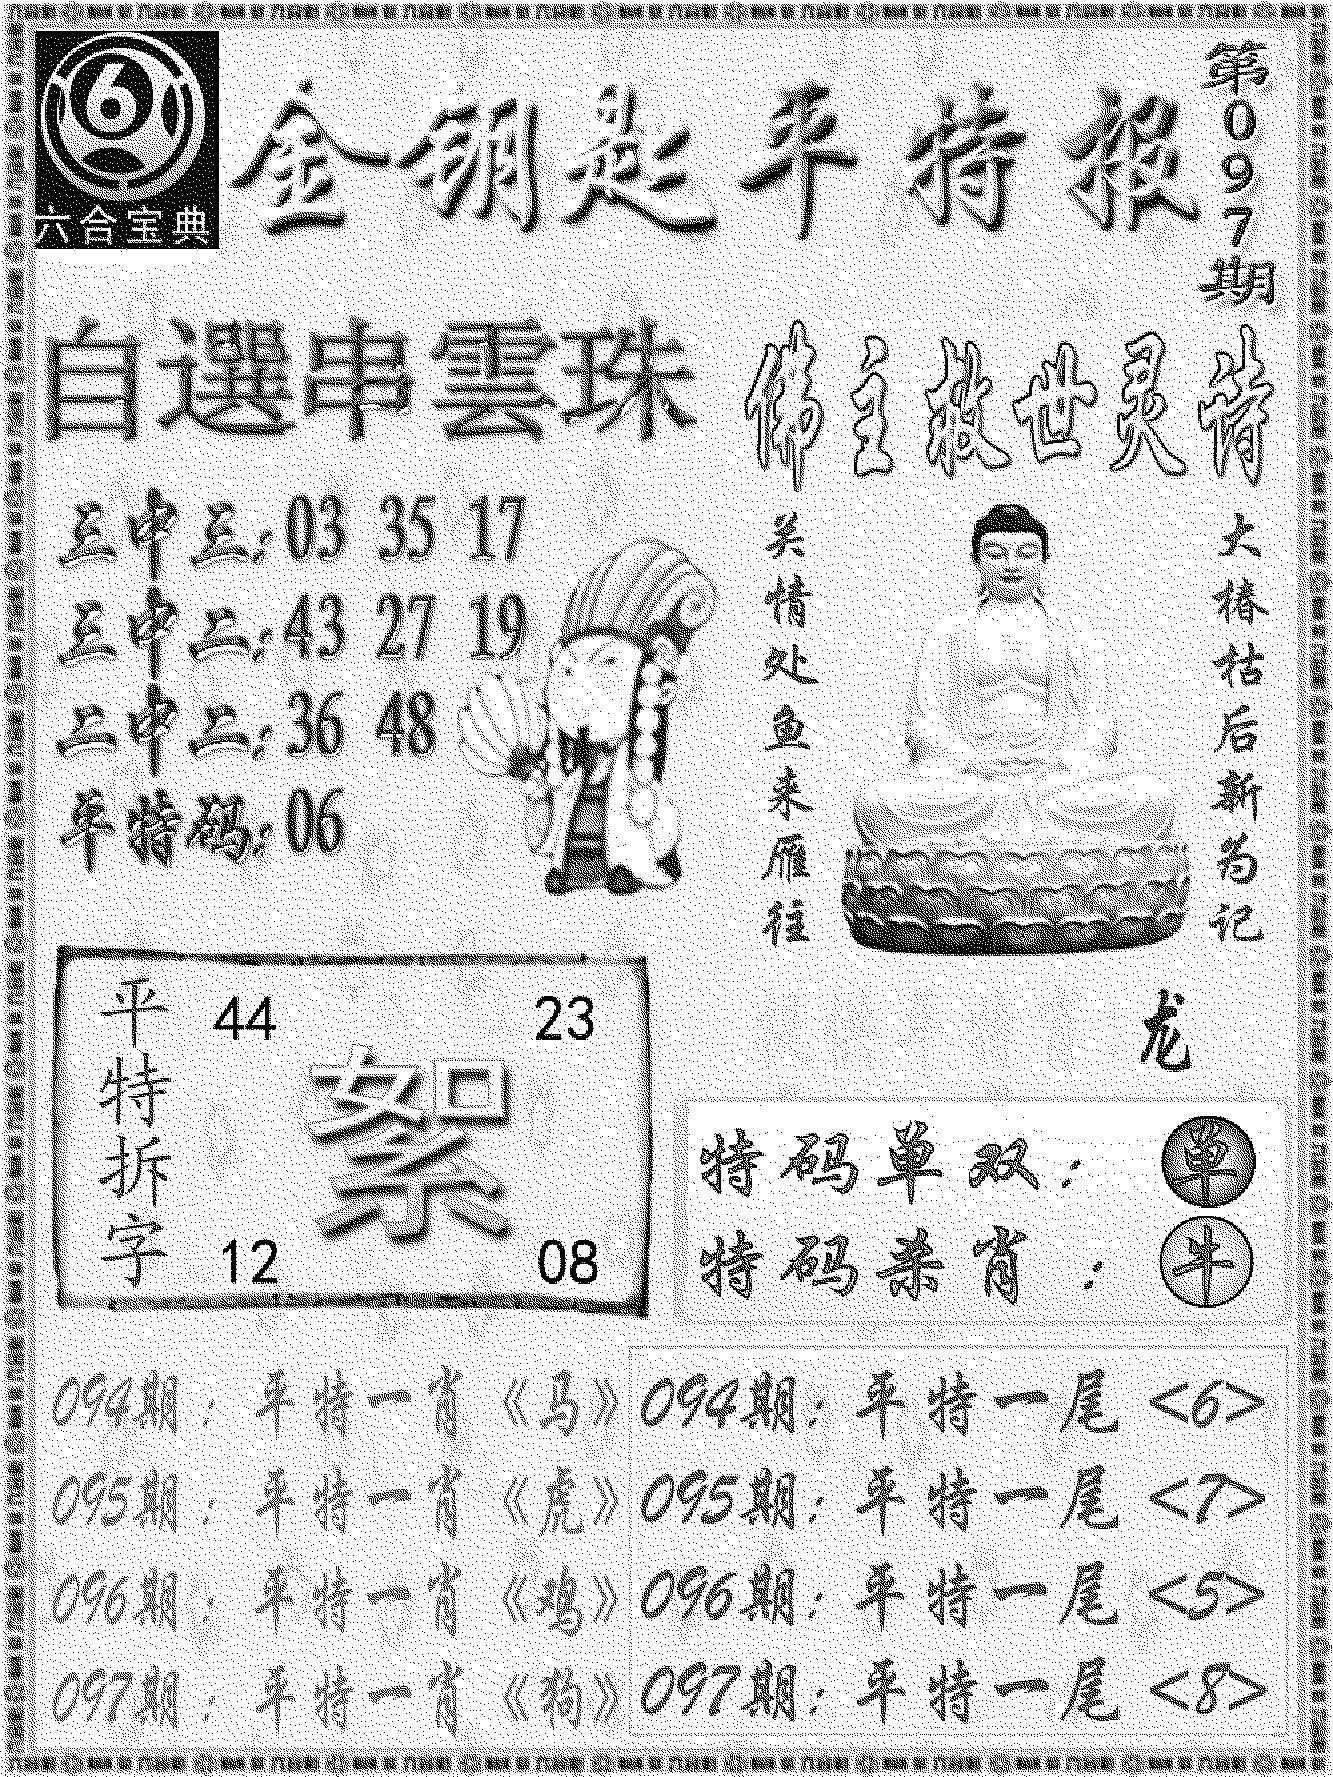 6
六合宝典
金钥匙平特报
第097期
自選串雲珠
三中三：03 35 17
三中二：43 27 19
二中二：36 48
单特码：06
佛主救世灵诗
大椿枯后新为记
关情处鱼来雁往
龙
平特拆字
44 23
絮
12 08
特码单双：单
特码杀肖：牛
094期：平特一肖《马》
095期：平特一肖《虎》
096期：平特一肖《鸡》
097期：平特一肖《狗》
094期：平特一尾<6>
095期：平特一尾<7>
096期：平特一尾<5>
097期：平特一尾<8>